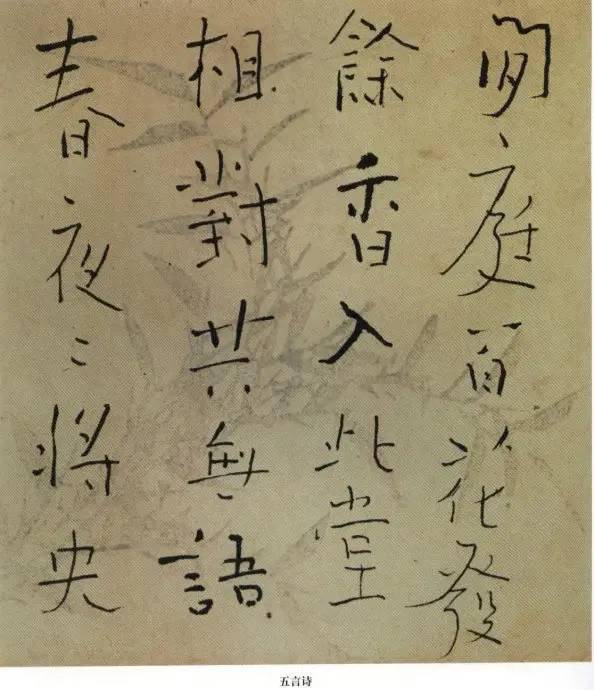 閒庭百花發
餘香入此堂
相對共無語
春夜々將央
五言诗